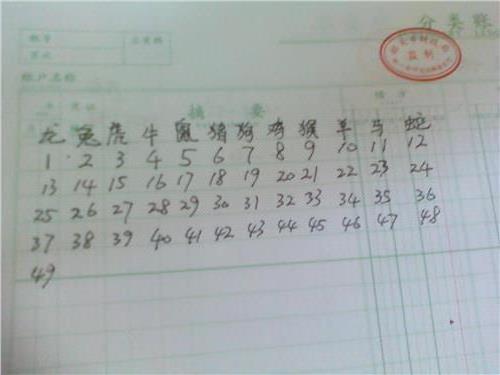 分类账
监制
账户名称
摘 要
龙 兔 虎 牛 鼠 猪 狗 鸡 猴 羊 马 蛇
1 2 3 4 5 6 7 8 9 10 11 12
13 14 15 16 17 18 19 20 21 22 23 24
25 26 27 28 29 30 31 32 33 34 35 36
37 38 39 40 41 42 43 44 45 46 47 48
49